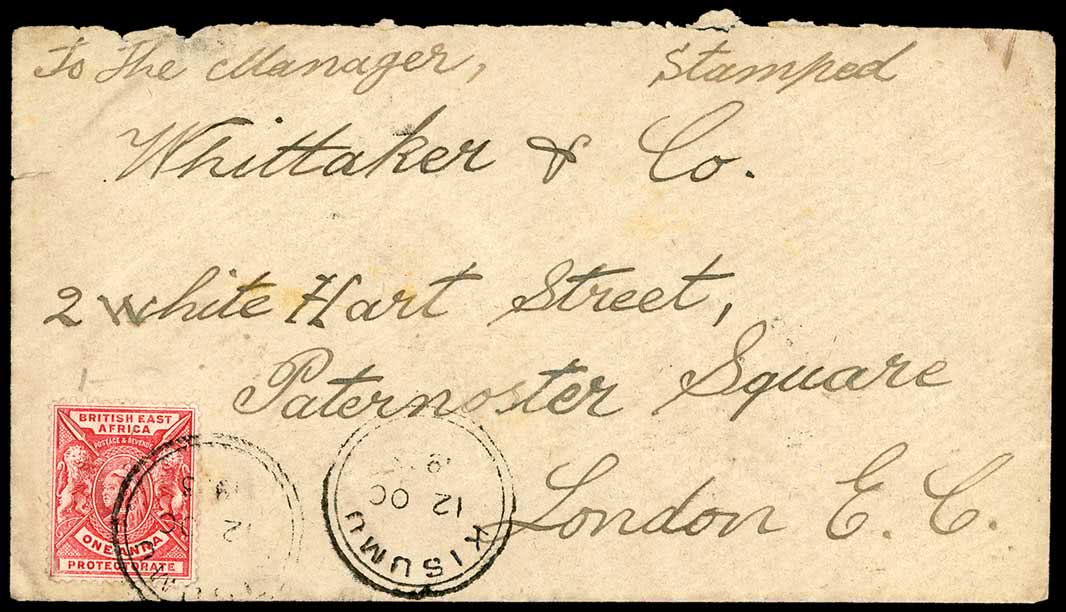 To The Manager, Stamped
Whittaker & Co.
2 White Hart Street,
Paternoster Square
London E. C.
BRITISH EAST
AFRICA
POSTAGE & REVENUE
ONE ANNA
PROTECTORATE
KISUMU
12 OC